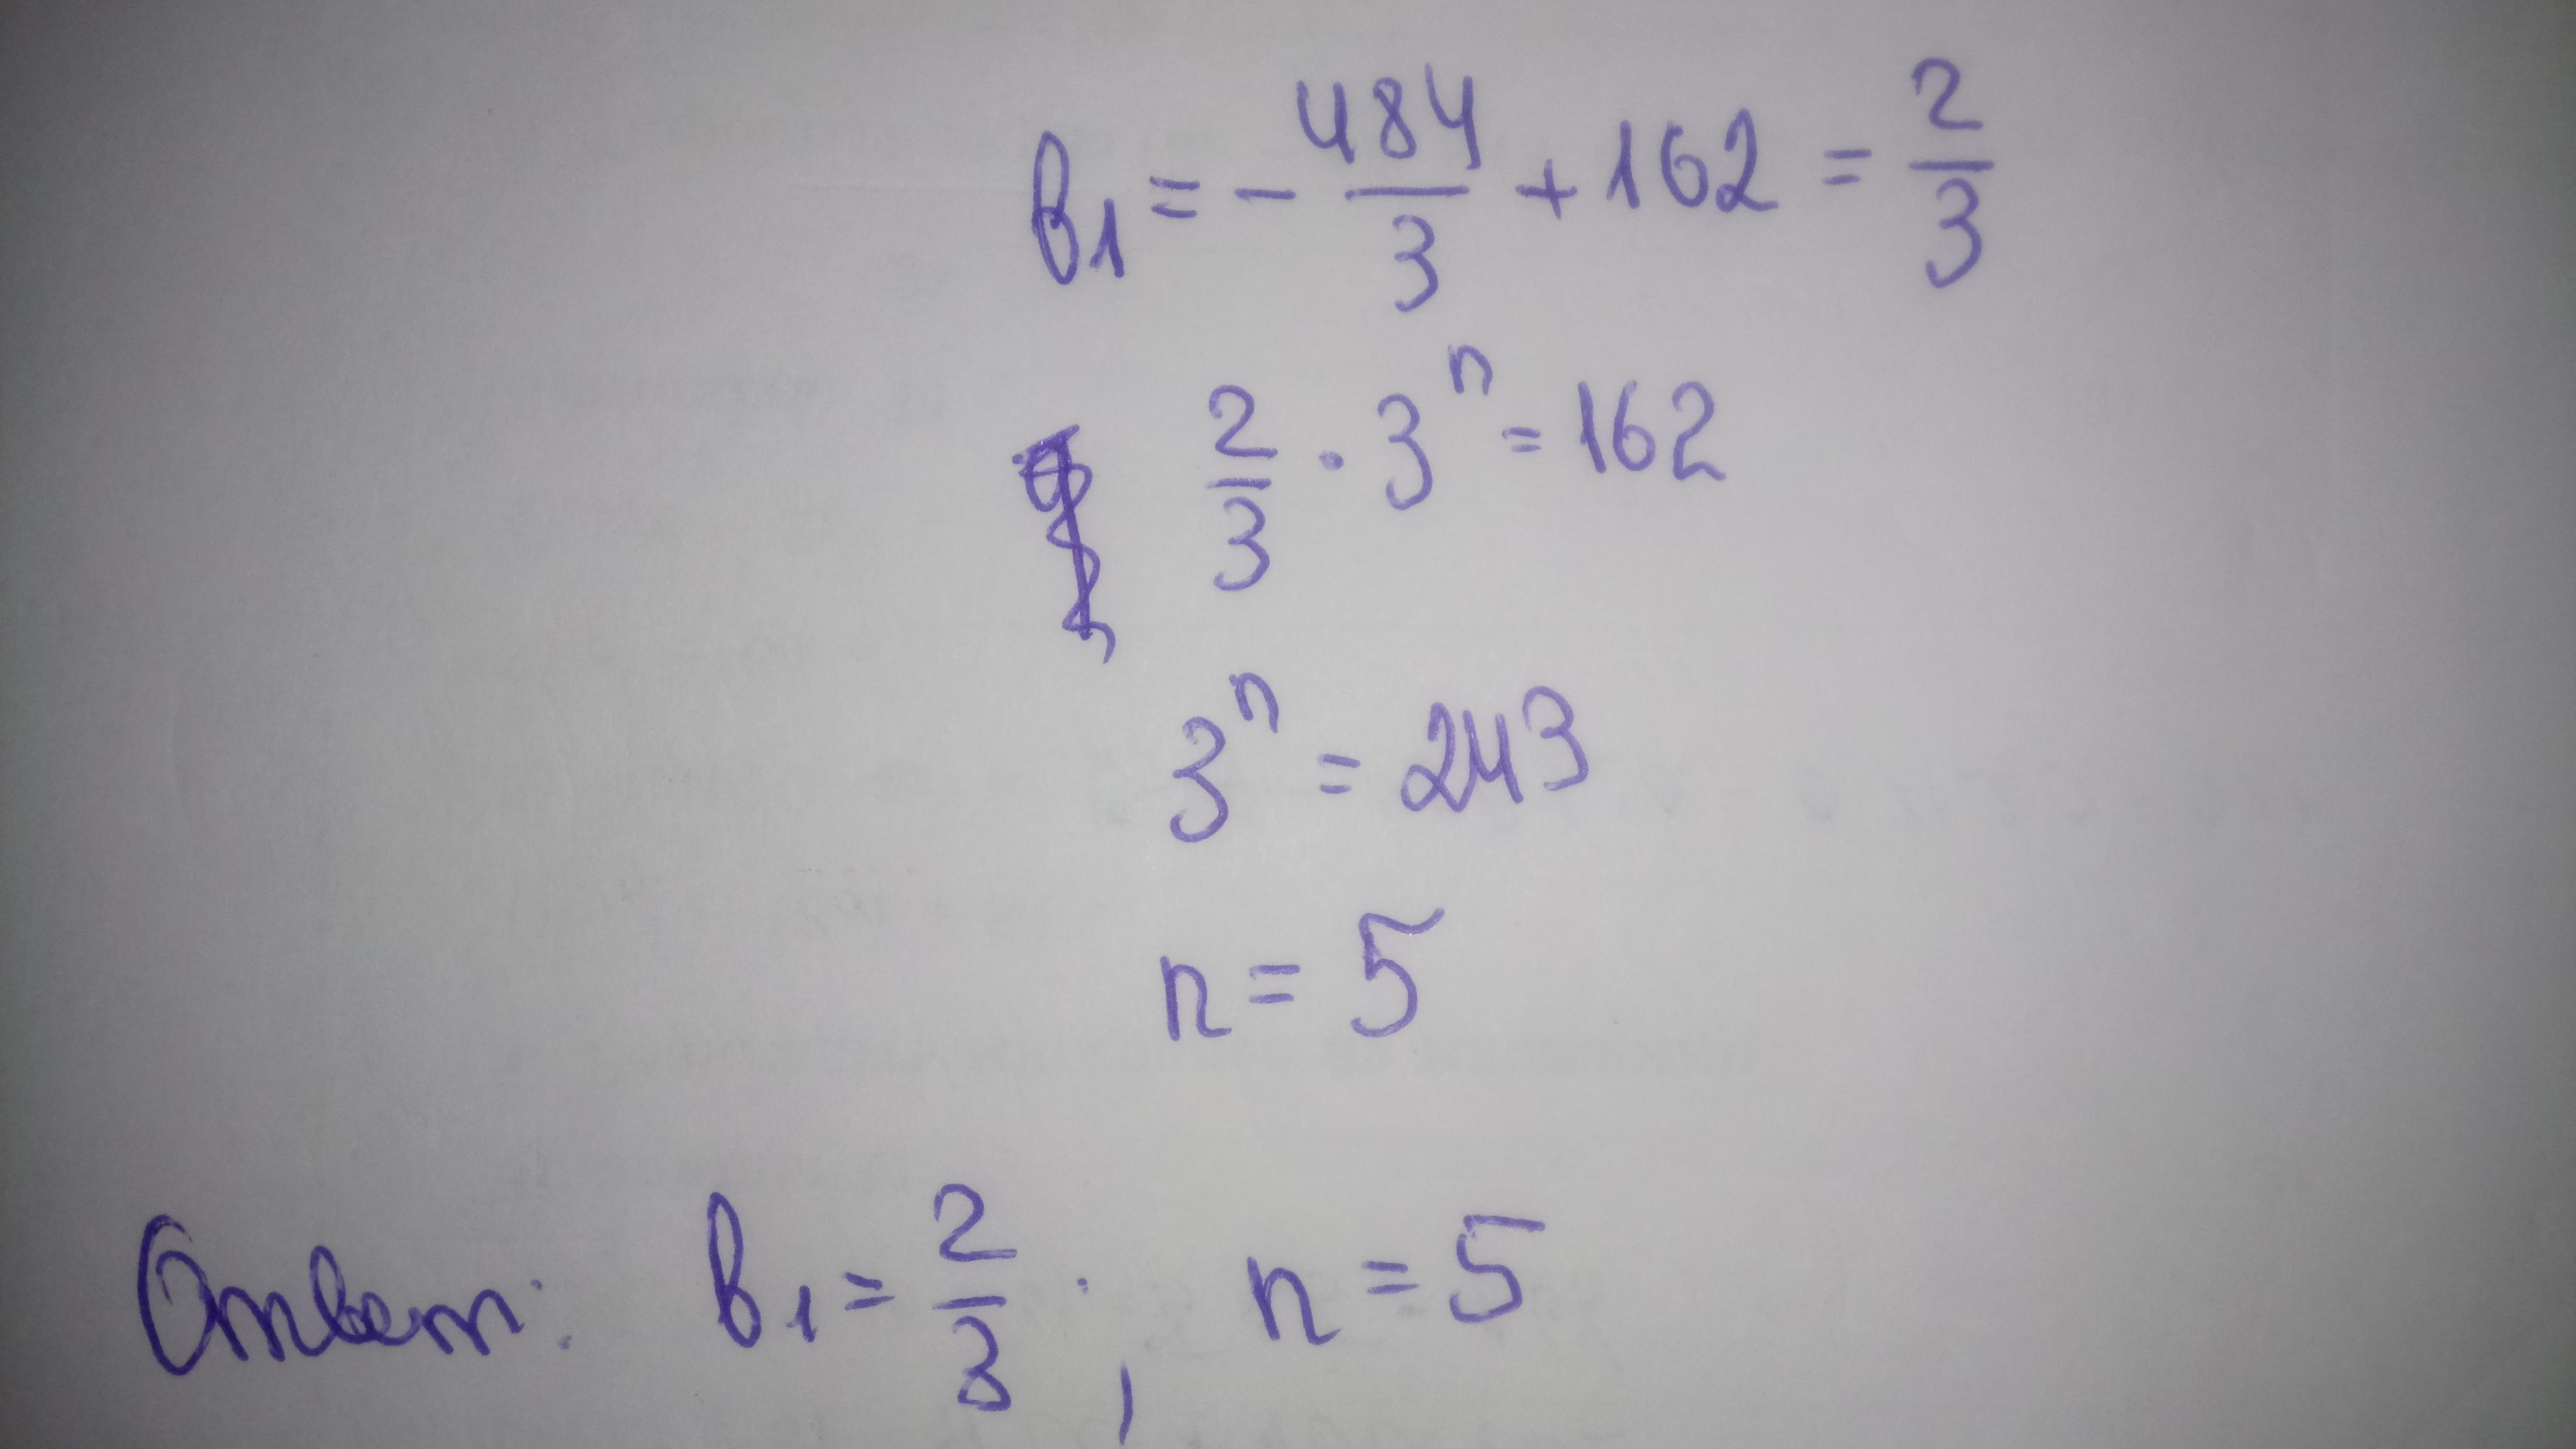 b₁ = - 484/3 + 162 = 2/3
2/3 · 3ⁿ = 162
3ⁿ = 243
n = 5
Ответ: b₁ = 2/3 ; n = 5